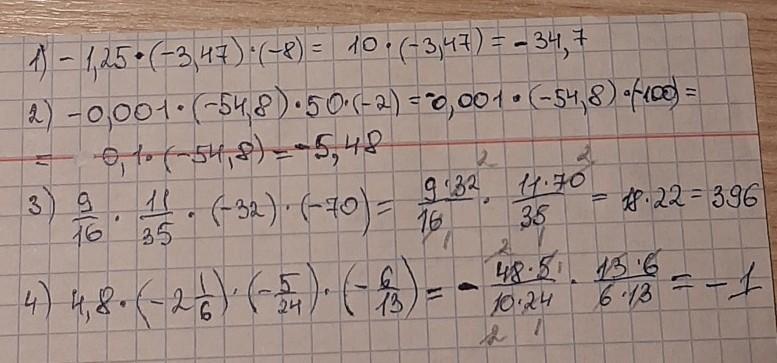 1) -1,25·(-3,47)·(-8) = 10·(-3,47) = -34,7
2) -0,001·(-54,8)·50·(-2) = -0,001·(-54,8)·(-100) =
= 0,1·(-54,8) = -5,48
3) 9/16 · 11/35 · (-32)·(-70) = 9·32/16 · 11·70/35 = 18·22 = 396
4) 4,8·(-2 1/6)·(-5/24)·(-6/13) = - 48·5/10·24 · 13·6/6·13 = -1